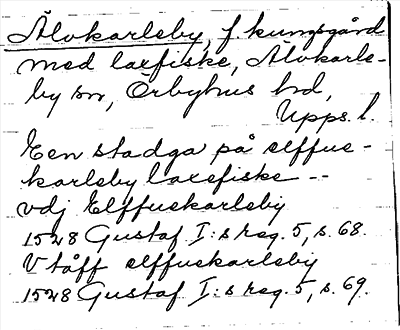 Älvkarleby, f. kungsgård
med laxfiske, Älvkarle-
by sn, Örbyhus hd,
Upps. l.
Een stadga på elffue-
karleby laxefiske --
vdj Elffuekarleby
1528 Gustaf I:s reg. 5, s. 68.
V táff elffuekarleby
1528 Gustaf I:s reg. 5, s. 69.